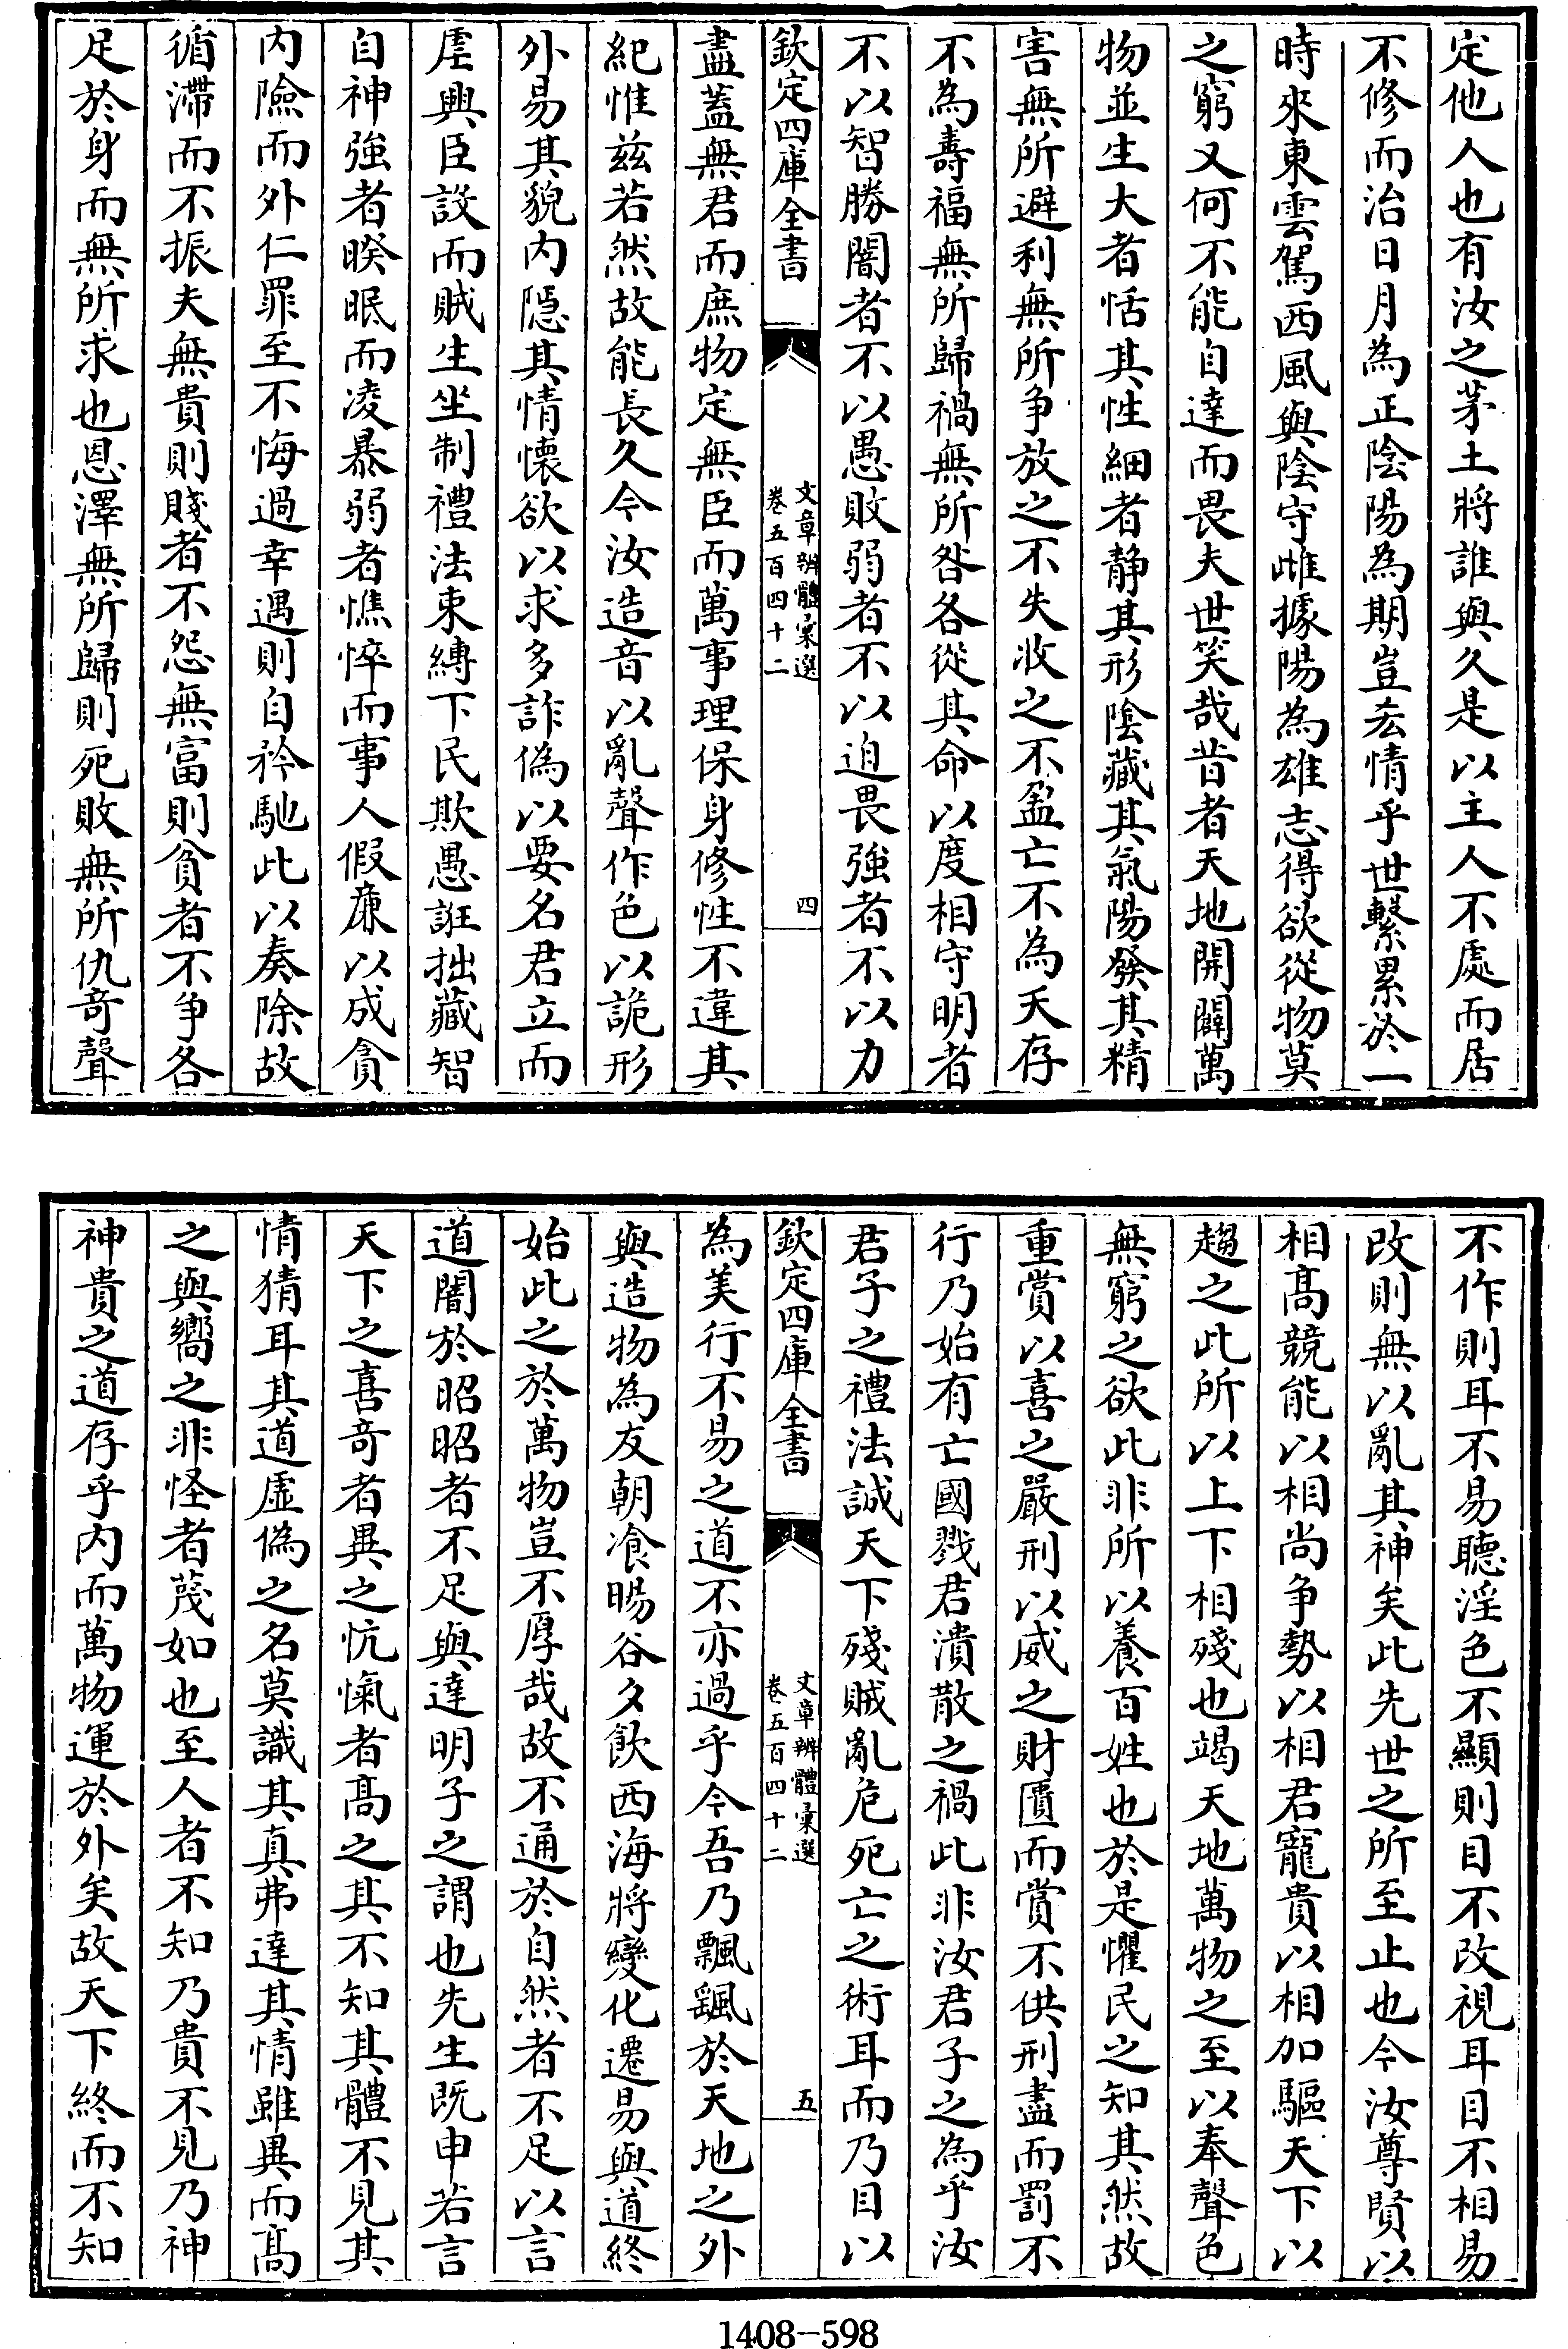 定他人也有汝之茅土將誰與久是以主人不處而居
不修而治日月為正陰陽為期豈𠫤情乎世繫累於一
時來東雲駕西風與陰守雌據陽為雄志得欲從物莫
之窮又何不能自達而畏夫世笑哉昔者天地開闢萬
物並生大者恬其性細者静其形陰藏其氣陽發其精
害無所避利無所争放之不失收之不盈亡不為夭存
不為壽福無所歸禍無所咎各從其命以度相守明者
不以智勝闇者不以愚敗弱者不以迫畏強者不以力
欽定四庫全書
文章辨體彙選
卷五百四十二
四
盡葢無君而庶物定無臣而萬事理保身修性不違其
紀惟兹若然故能長久今汝造音以亂聲作色以詭形
外易其貌内隱其情懷欲以求多詐偽以要名君立而
虐興臣設而賊生坐制禮法束縛下民欺愚誑拙藏智
自神強者睽眠而凌暴弱者憔悴而事人假廉以成貪
内險而外仁罪至不悔過幸遇則自矜馳此以奏除故
循滯而不振夫無貴則賤者不怨無富則貧者不争各
足於身而無所求也恩澤無所歸則死敗無所仇奇聲
不作則耳不易聽淫色不顯則目不改視耳目不相易
改則無以亂其神矣此先世之所至止也今汝尊賢以
相髙競能以相尚争勢以相君寵貴以相加驅天下以
趨之此所以上下相殘也竭天地萬物之至以奉聲色
無窮之欲此非所以養百姓也於是懼民之知其然故
重賞以喜之嚴刑以威之財匱而賞不供刑盡而罰不
行乃始有亡國戮君潰散之禍此非汝君子之為乎汝
君子之禮法誠天下殘賊亂危死亡之術耳而乃目以
欽定四庫全書
文章辨體彙選
卷五百四十二
五
為美行不易之道不亦過乎今吾乃飄颻於天地之外
與造物為友朝飡暘谷夕飲西海將變化遷易與道終
始此之於萬物豈不厚哉故不通於自然者不足以言
道闇於昭昭者不足與達明子之謂也先生既申若言
天下之喜奇者異之忼愾者髙之其不知其體不見其
情猜耳其道虚偽之名莫識其真弗達其情雖異而髙
之與嚮之非怪者蔑如也至人者不知乃貴不見乃神
神貴之道存乎内而萬物運於外矣故天下終而不知
1408-598